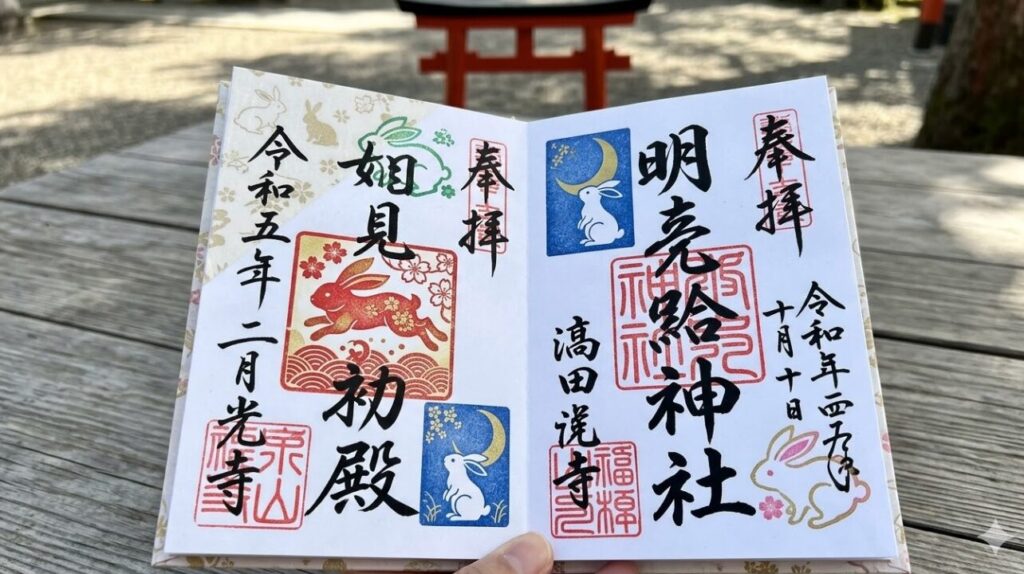 奉拝
令和年四
十月十日
明亮給神社
滈田说寺
神社
奉拝
見
初殿
令和五年
二月光寺